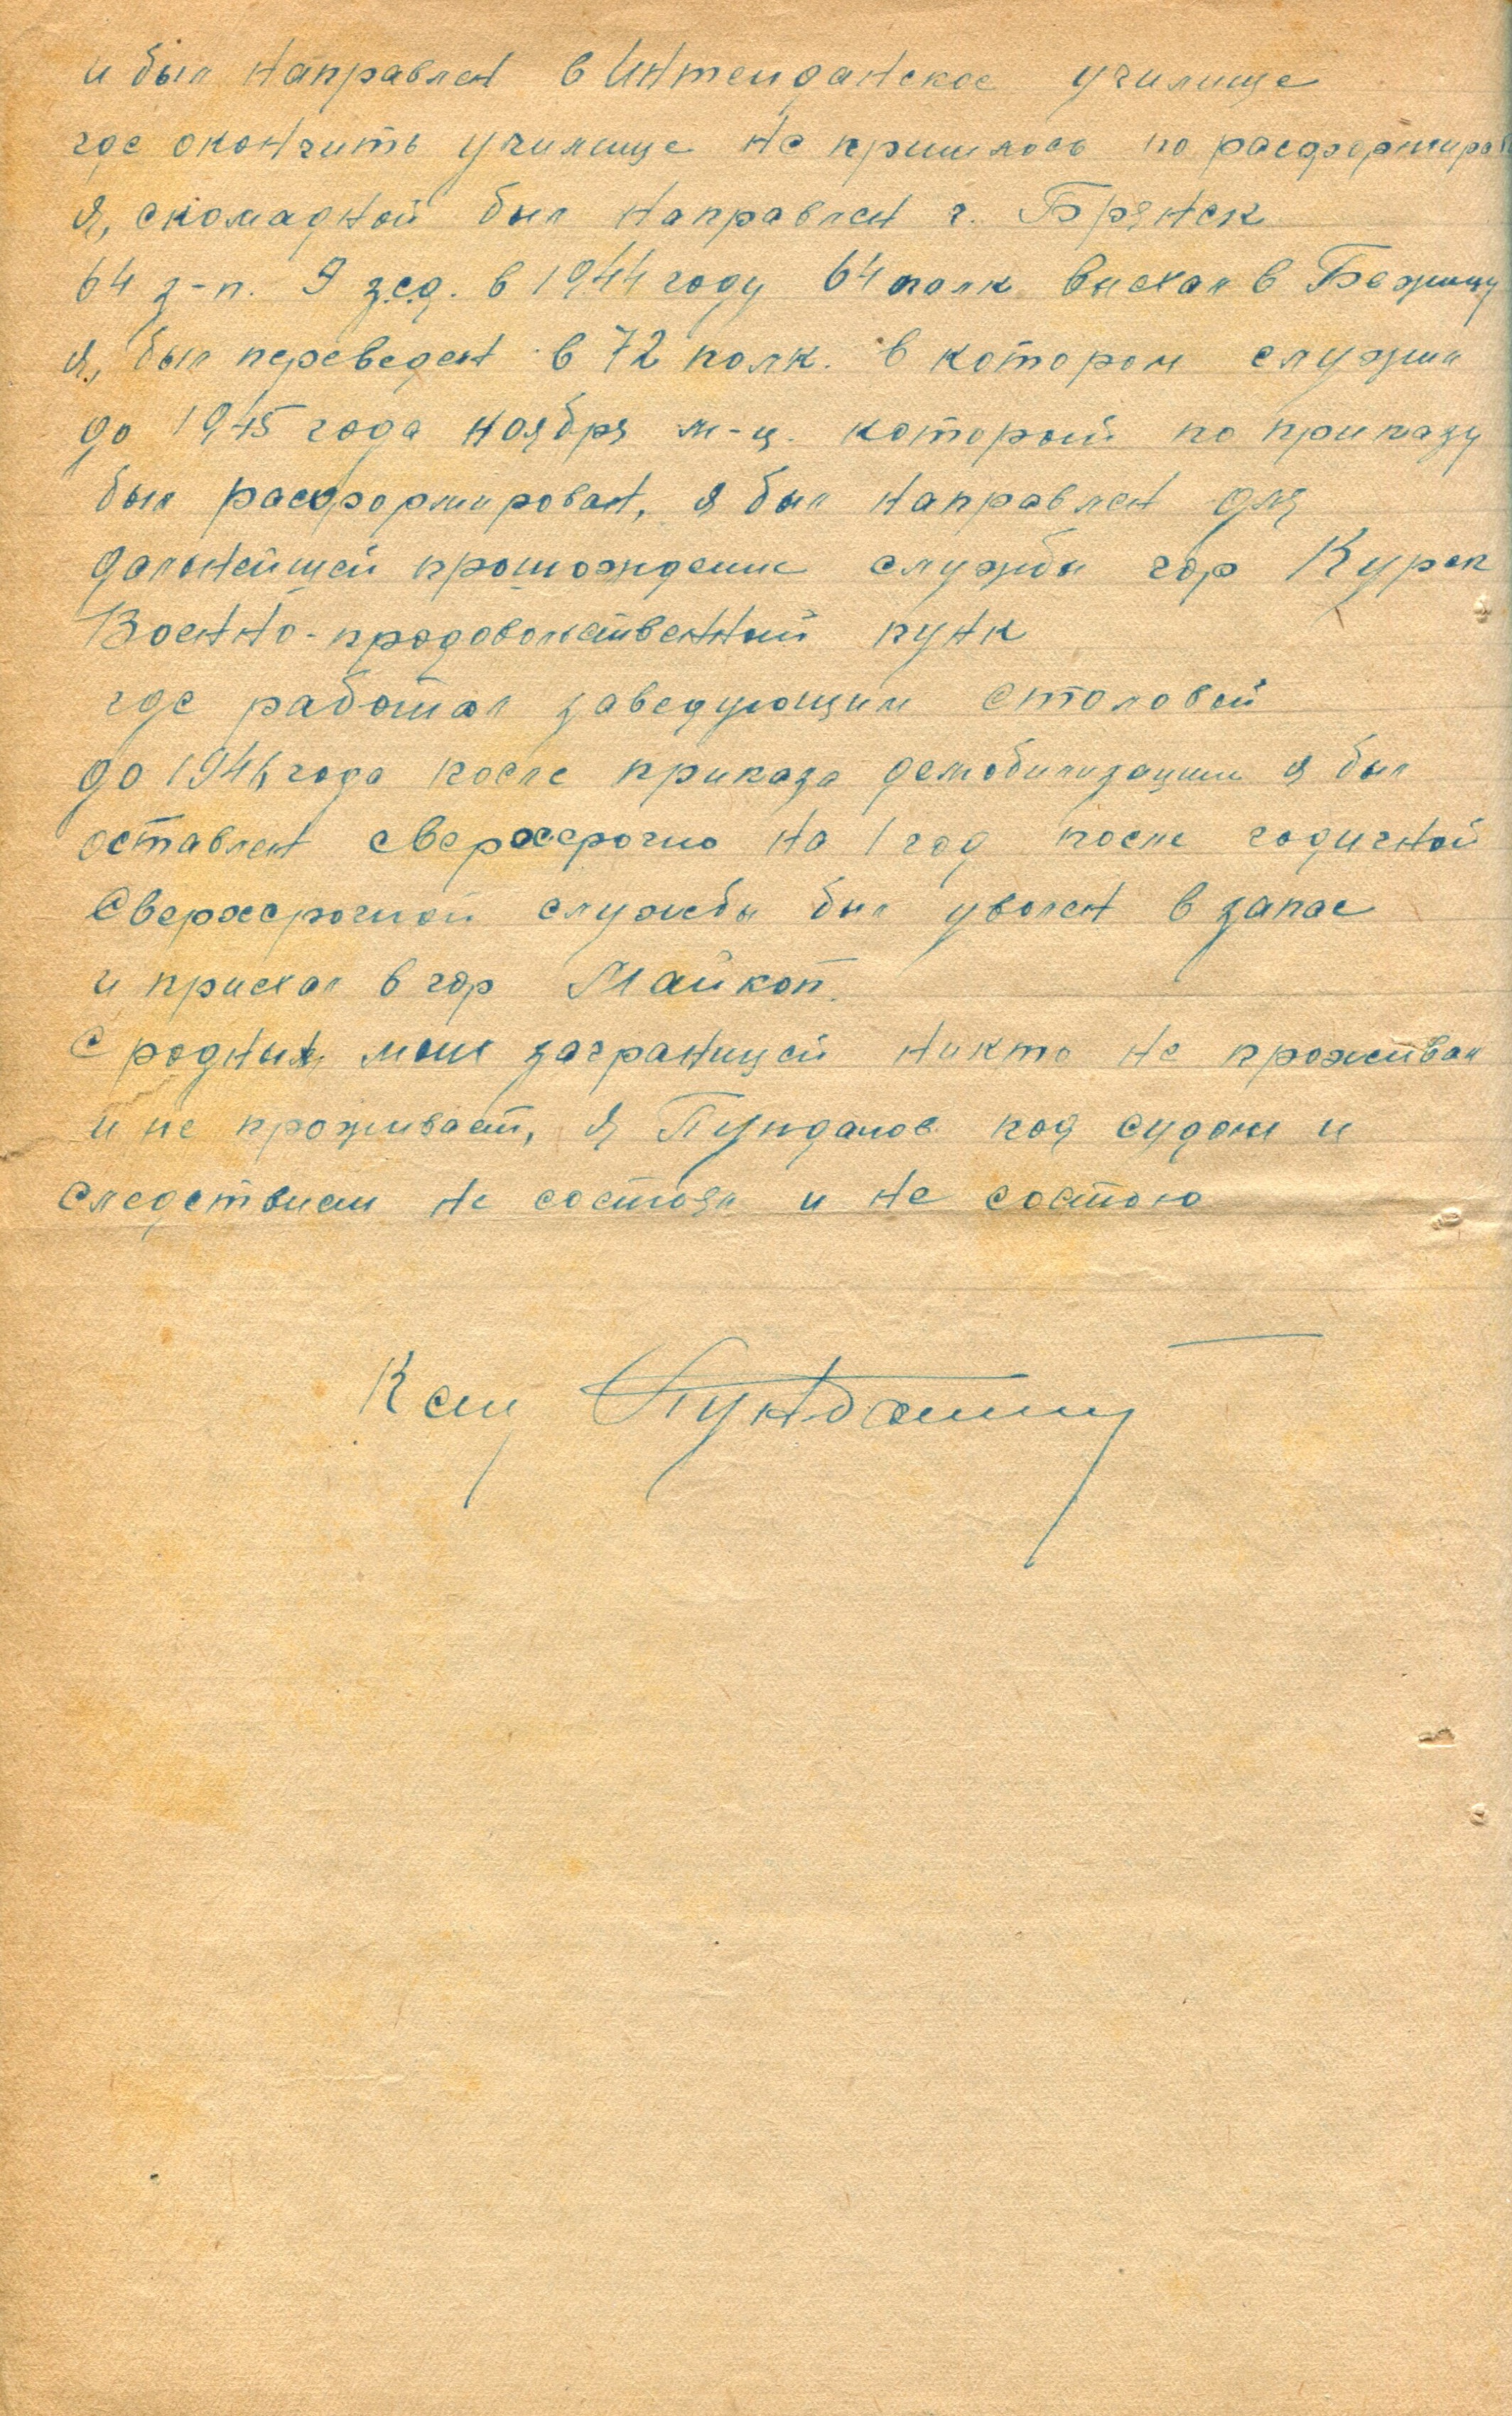 и был направлен в Интенданское училище
где окончить училище не пришлось по расформиров
я, скомадной был направлен г. Брянск
64 з-п. 9 з.с.д. в 1944 году 64 полк выехал в Бежицу
я, был переведен в 72 полк. в котором служил
до 1945 года ноября м-ц. который по приказу
был расформирован, я был направлен для
дальнейшей прошождение службы гор Курск
Военно-продовольственный пунк
где работал заведующим столовой
до 1946 года после приказа демобилизации я был
оставлен сверхсрочно на 1 год после годичной
Сверхсрочной службы был уволен в запас
и приехал в гор Майкоп.
С родных моих заграницей никто не проживал
и не проживает, я Пундалов под судом и
следствием не состоял и не состою
К сему